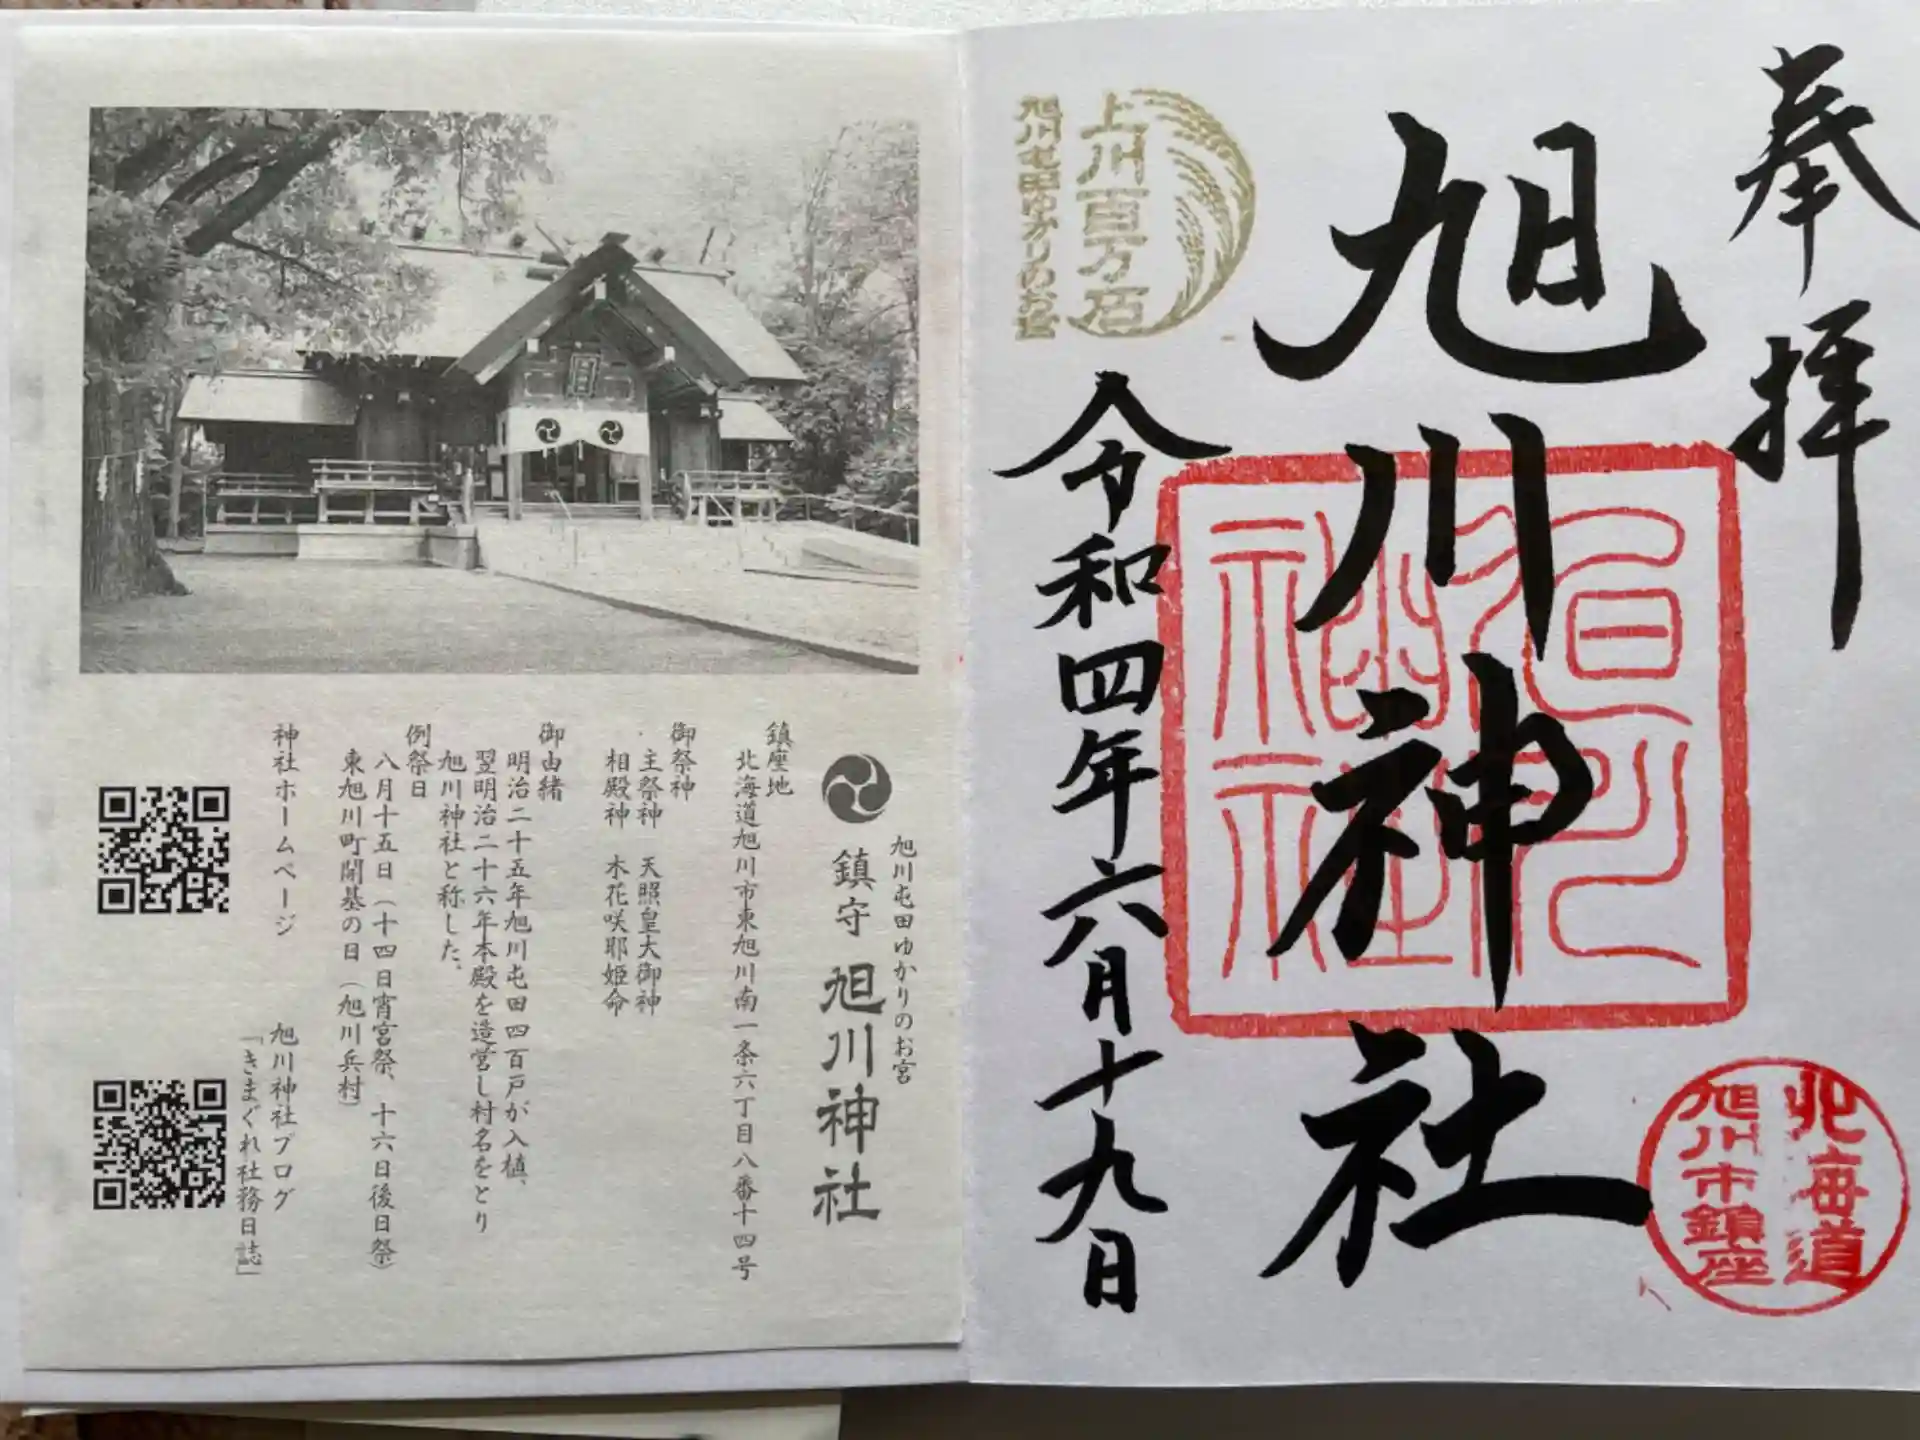 奉拝
旭川神社
令和四年六月十九日
上川百万石
旭川屯田ゆかりのお宮
旭川神社
北海道
旭川市鎮座
旭川屯田ゆかりのお宮
鎮守 旭川神社
鎮座地
北海道旭川市東旭川南一条六丁目八番十四号
御祭神
主祭神 天照皇大御神
相殿神 木花咲耶姫命
御由緒
明治二十五年旭川屯田四百戸が入植、
翌明治二十六年本殿を造営し村名をとり
旭川神社と称した。
例祭日
八月十五日（十四日宵宮祭、十六日後日祭）
東旭川町開基の日（旭川兵村）
神社ホームページ
旭川神社ブログ
「きまぐれ社務日誌」